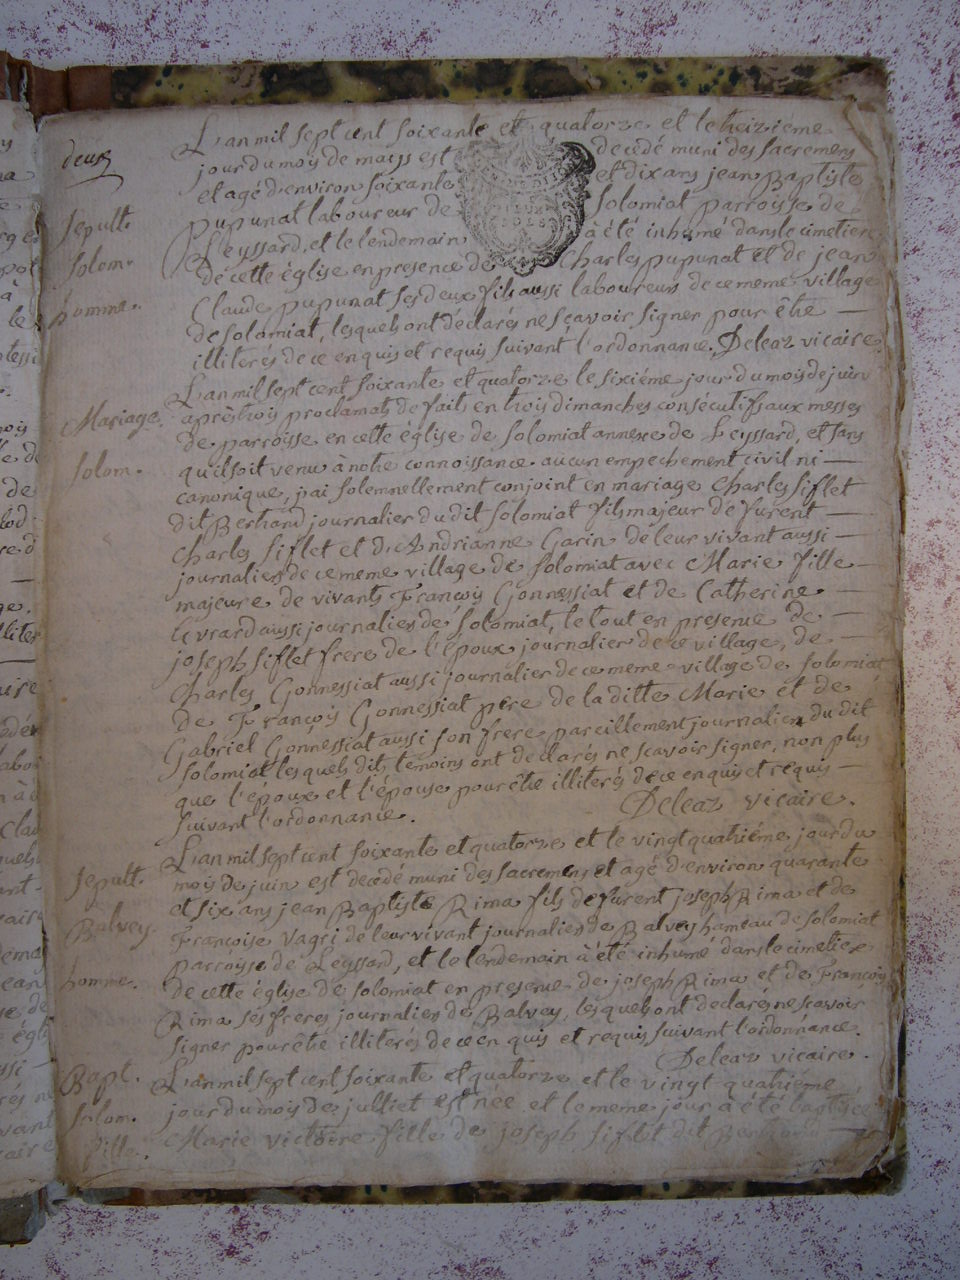 deux
L'an mil sept cent soixante et quatorze et le treizieme
jour du mois de mays est décédé muni des sacremens
et agé d'environ soixante et dix ans jean Baptiste
Sepult. pupunat laboureur de Solomiat parroisse de
Leyssard, et le lendemain à été inhumé dans le cimetiere
Solom. de cette église en presence de Charles pupunat et de jean
homme. Claude pupunat ses deux fils aussi laboureurs de ce meme village
de solomiat, lesquels ont déclarés ne sçavoir signer pour être —
illiterés de ce enquis et requis suivant l'ordonnance. Deleaz vicaire.
L'an mil sept cent soixante et quatorze le sixiéme jour du mois de juin
Mariage. après trois proclamats de faits en trois dimanches consécutifs aux messes
de parroisse en cette église de Solomiat annexe de Leyssard, et sans
Solom. qu'il soit venu à notre connoissance aucun empechement civil ni —
canonique, j'ai solemnellement conjoint en mariage Charles Siflet
dit Bertrand journalier du dit Solomiat fils majeur de furent —
Charles Siflet et d'Andrianne Garin de leur vivant aussi —
journaliers de ce meme village de Solomiat avec Marie fille —
majeure de vivants François Gonnessiat et de Catherine —
Evrard aussi journaliers de Solomiat, le tout en presence de —
joseph Siflet frere de l'époux journalier de ce village, de —
Charles Gonnessiat aussi journalier de ce meme village de Solomiat
de François Gonnessiat pere de la ditte Marie et de
Gabriel Gonnessiat aussi son frere pareillement journaliers du dit
Solomiat lesquels dits témoins ont declarés ne scavoir signer, non plus
que l'epoux et l'épouse pour être illiterés de ce enquis et requis —
suivant l'ordonnance. Deleaz vicaire.
L'an mil sept cent soixante et quatorze et le vingt quatriéme jour du
Sepult. mois de juin est decedé muni des sacremens et agé d'environ quarante
et six ans jean Baptiste Rima fils de furent joseph Rima et de
Balvey. Françoise Vagri de leur vivant journaliers de Balvey hameau de Solomiat
parroisse de Leyssard, et le lendemain à été inhumé dans le cimetiere
homme. de cette église de Solomiat en presence de joseph Rima et de François
Rima ses freres journaliers de Balvey, lesquels ont declarés ne scavoir
signer pour être illiterés de ce enquis et requis suivant l'ordonnance.
Deleaz vicaire.
Bapt. L'an mil sept cent soixante et quatorze et le vingt quatriéme
Solom. jour du mois de julliet est née et le meme jour à été baptisée
fille. Marie victoire fille de joseph Siflet dit Bertrand